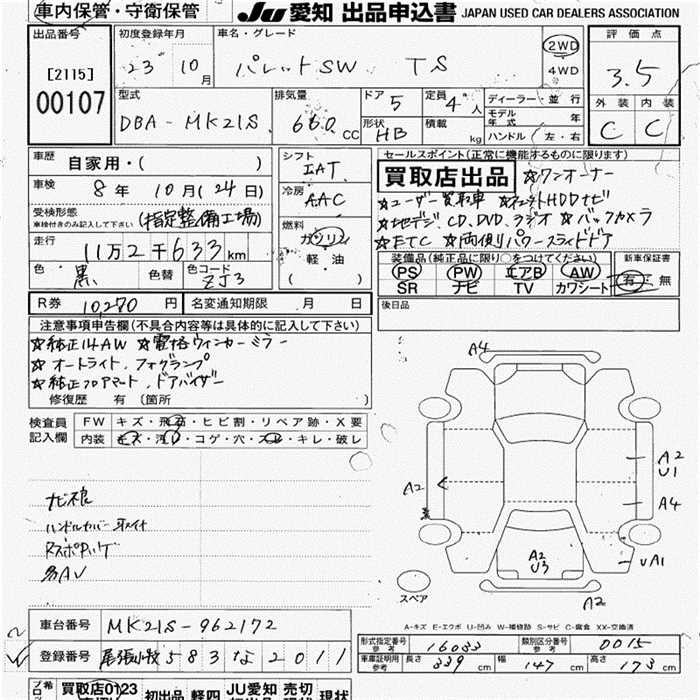 車内保管・守衛保管
JU 愛知 出品申込書 JAPAN USED CAR DEALERS ASSOCIATION
出品番号 初度登録年月 車名・グレード 評価点
[2115] 23 10月 パレットSW TS 2WD 3.5
4WD
00107 型式 排気量 ドア 5 定員 4人 ディーラー・並行 外装 内装
DBA-MK21S 660cc 形状 HB 積載 kg モデル年式 年 C C
ハンドル(左・右)
車歴 自家用・( ) シフト IAT セールスポイント(正常に機能するものに限ります)
車検 8年 10月(24日) 冷房 AAC 買取店出品 ☆ワンオーナー
受検形態 車検付きのみ記入して下さい (指定整備工場) ☆ユーザー買取車 ☆HDDナビ
走行 11万2千633km 燃料 ガソリン ☆地デジ、CD、DVD、ラジオ ☆バックカメラ
軽・油 ☆ETC ☆両側パワースライドドア
色 黒 色替 色コード ZJ3 ( ) 装備品(純正品に限り○をつけてください) 新車保証書
PS PW エアB AW 有・無
SR ナビ TV カワシート
R券 10,270円 名変通知期限 月 日 後日品
注意事項申告欄(不具合内容等は具体的に記入して下さい)
☆純正14AW ☆電格ウィンカーミラー
☆オートライト、フォグランプ
☆純正フロアマット、ドアバイザー
修復歴 有(箇所 )
検査員記入欄 FW キズ・飛石・ヒビ割・リペア跡・X要
内装 キズ・汚レ・コゲ・穴・スレ・キレ・破レ
A4
A2
U1
A2
A4
ハンドルカバー
A2
U3
UA1
スペア
A2
A-キズ E-エクボ U-凹み W-補修跡 S-サビ C-腐食 XX-交換済
車台番号 MK21S-962172
型式指定番号 参考 16033 類別区分番号 参考 0015
登録番号 尾張小牧 583 な 2011
車庫証明用 参考 長さ 339cm 幅 147cm 高さ 173cm
買取店0123 初出品 軽四 JU愛知 売切 現状